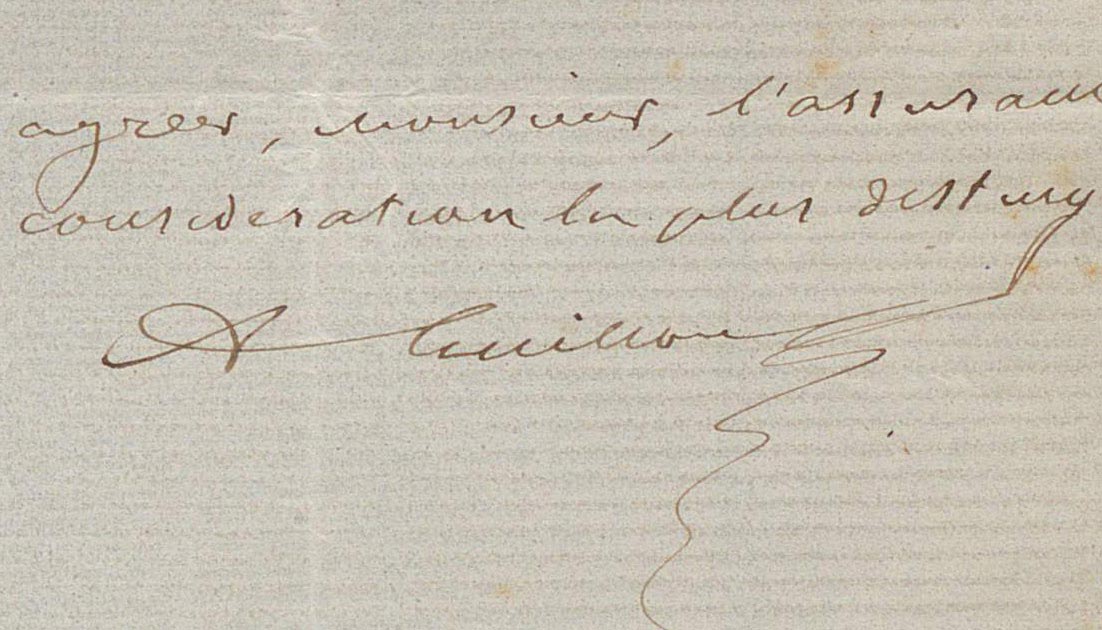 agreer, monsieur, l'assuranc
consideration la plus disting
A Guillon